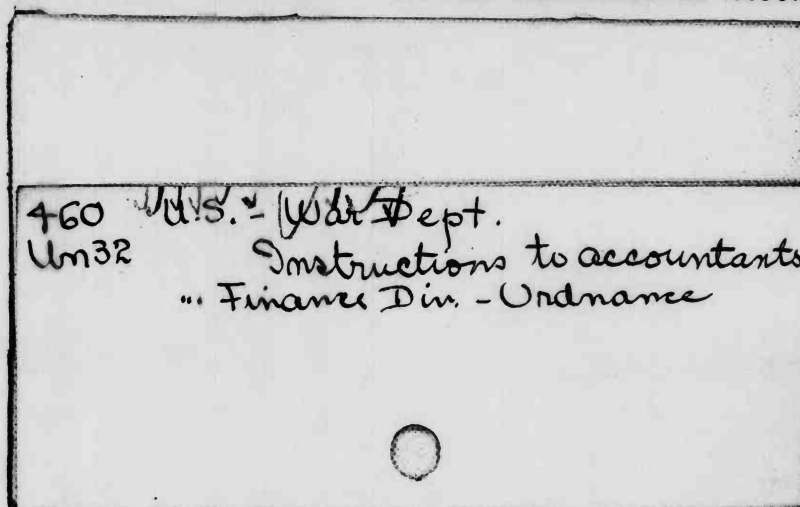 460 U.S. - War Dept.
Un32 Instructions to accountants
... Finance Div. - Ordnance